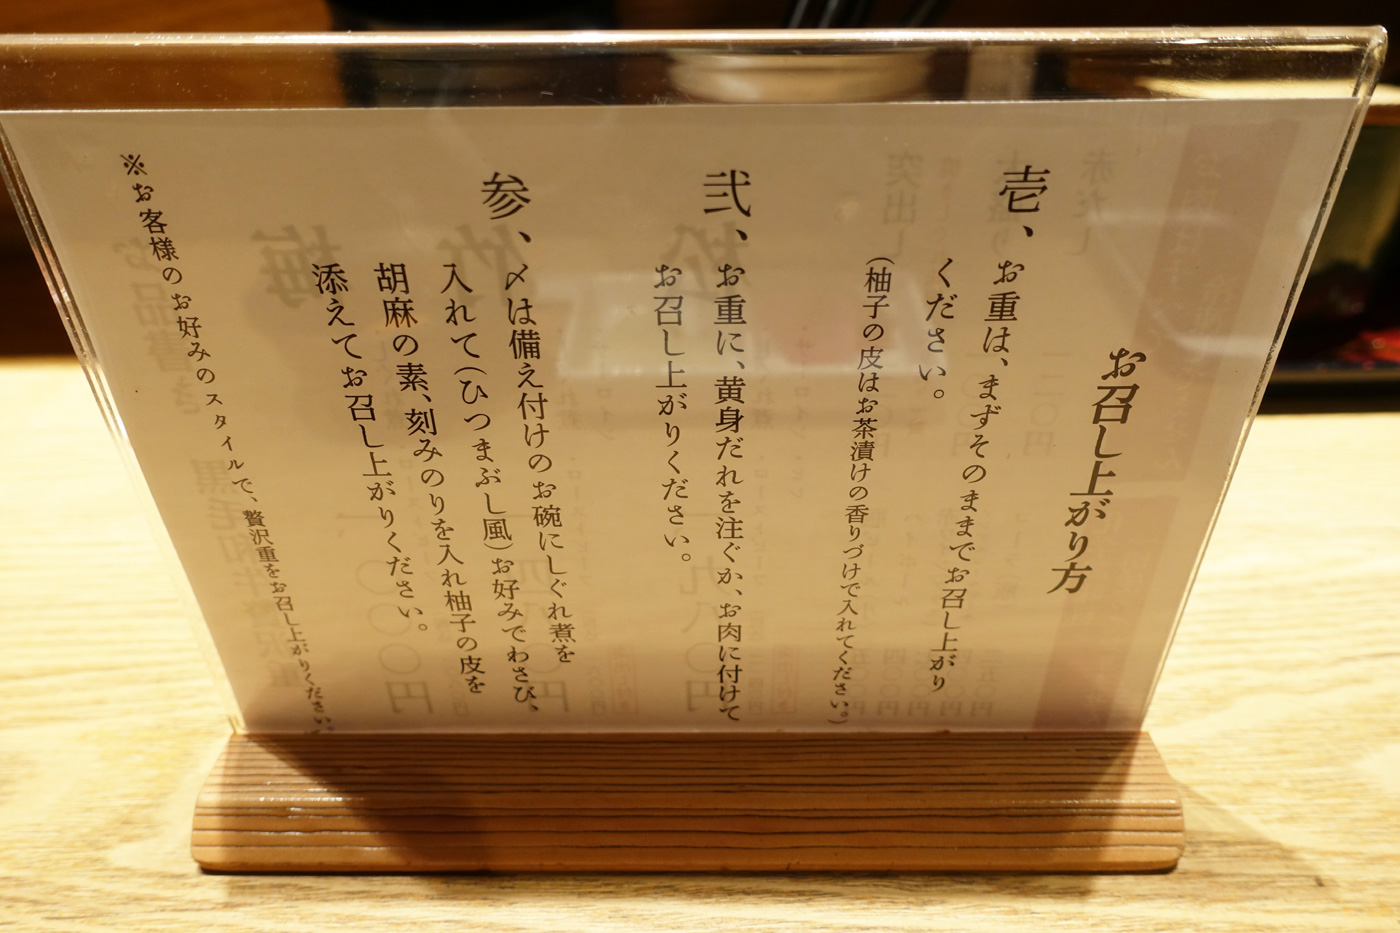 お召し上がり方
壱、お重は、まずそのままでお召し上がり
ください。
(柚子の皮はお茶漬けの香りづけで入れてください。)
弐、お重に、黄身だれを注ぐか、お肉に付けて
お召し上がりください。
参、〆は備え付けのお碗にしぐれ煮を
入れて(ひつまぶし風)お好みでわさび、
胡麻の素、刻みのりを入れ柚子の皮を
添えてお召し上がりください。
※お客様のお好みのスタイルで、贅沢重をお召し上がりください。